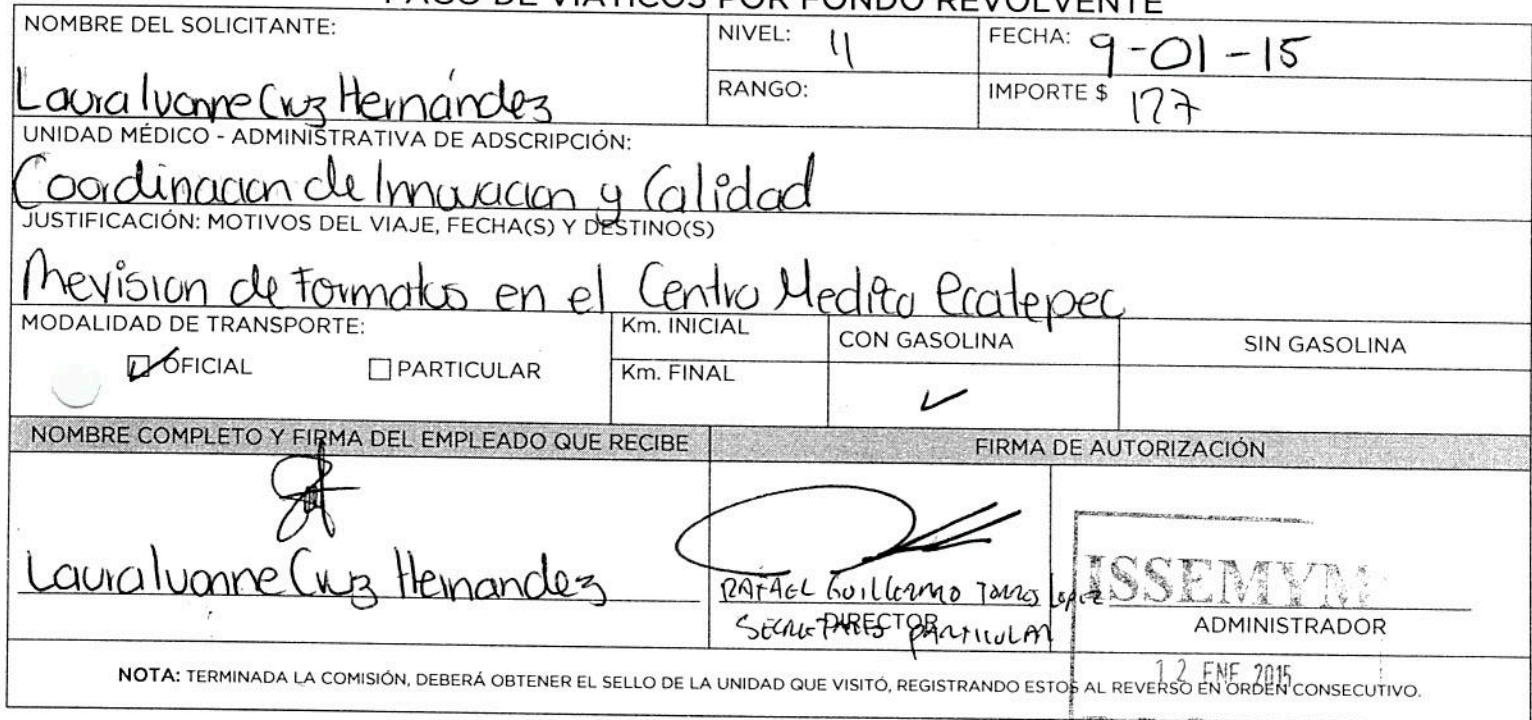 PAGO DE VIÁTICOS POR FONDO REVOLVENTE
NOMBRE DEL SOLICITANTE:
Laura Ivonne Cruz Hernández
NIVEL: 11
FECHA: 9-01-15
RANGO:
IMPORTE $ 177
UNIDAD MÉDICO - ADMINISTRATIVA DE ADSCRIPCIÓN:
Coordinacion de Innovacion y Calidad
JUSTIFICACIÓN: MOTIVOS DEL VIAJE, FECHA(S) Y DESTINO(S)
Revision de Formatos en el Centro Medico Ecatepec
MODALIDAD DE TRANSPORTE:
OFICIAL PARTICULAR
Km. INICIAL
Km. FINAL
CON GASOLINA
SIN GASOLINA
NOMBRE COMPLETO Y FIRMA DEL EMPLEADO QUE RECIBE
FIRMA DE AUTORIZACIÓN
Laura Ivonne Cruz Hernandez
RAFAEL Guillermo Torres Lopez
DIRECTOR
SECRETARIO PARTICULAR
ISSEMYM
ADMINISTRADOR
12 ENE 2015
NOTA: TERMINADA LA COMISIÓN, DEBERÁ OBTENER EL SELLO DE LA UNIDAD QUE VISITÓ, REGISTRANDO ESTOS AL REVERSO EN ORDEN CONSECUTIVO.